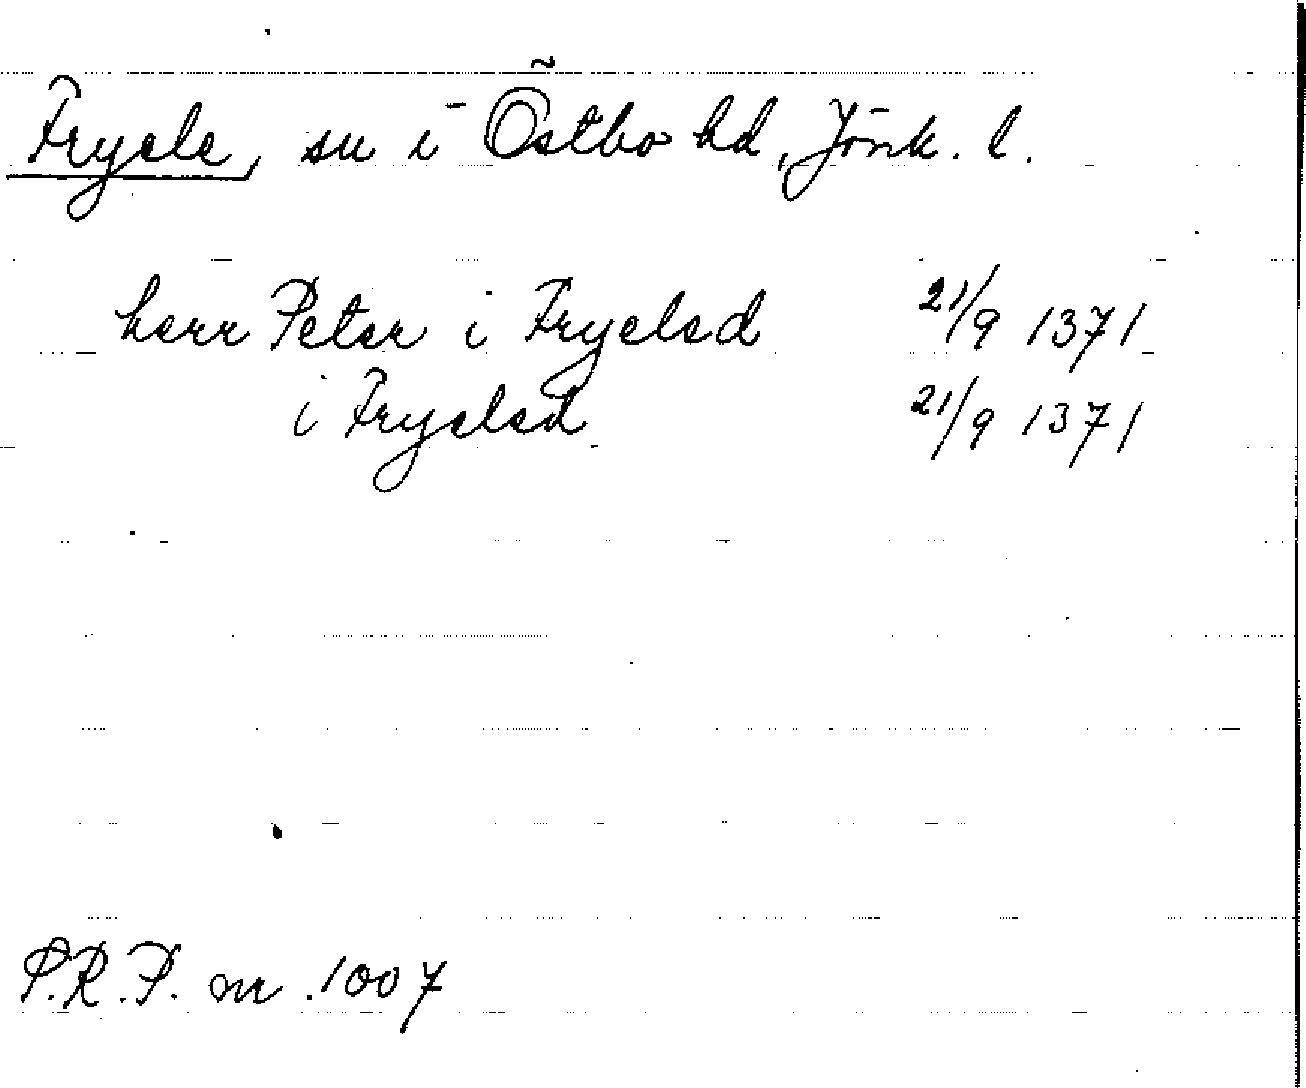 Fryele, sn i Östbo hd, Jönk. l.
herr Peter i Fryelsd 21/9 1371
i Fryelsd 21/9 1371
P.R.P. nr. 1007